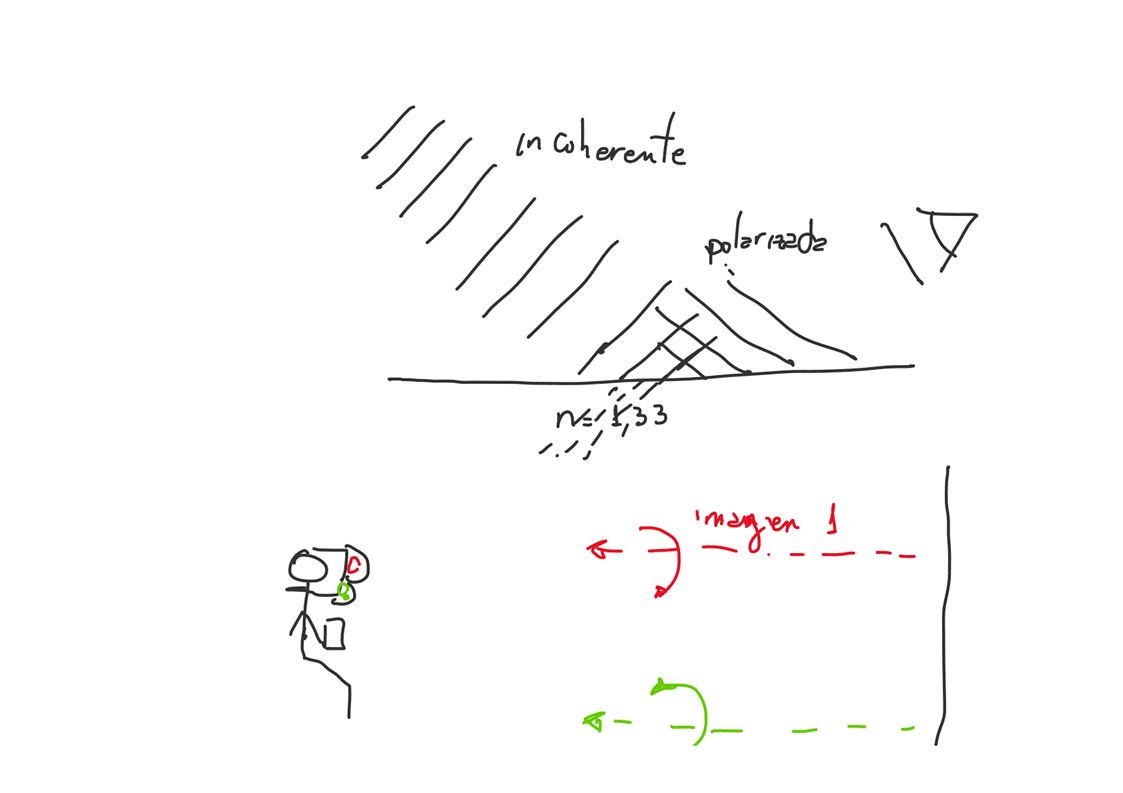 incoherente
polarizada
n=1,33
imagen 1